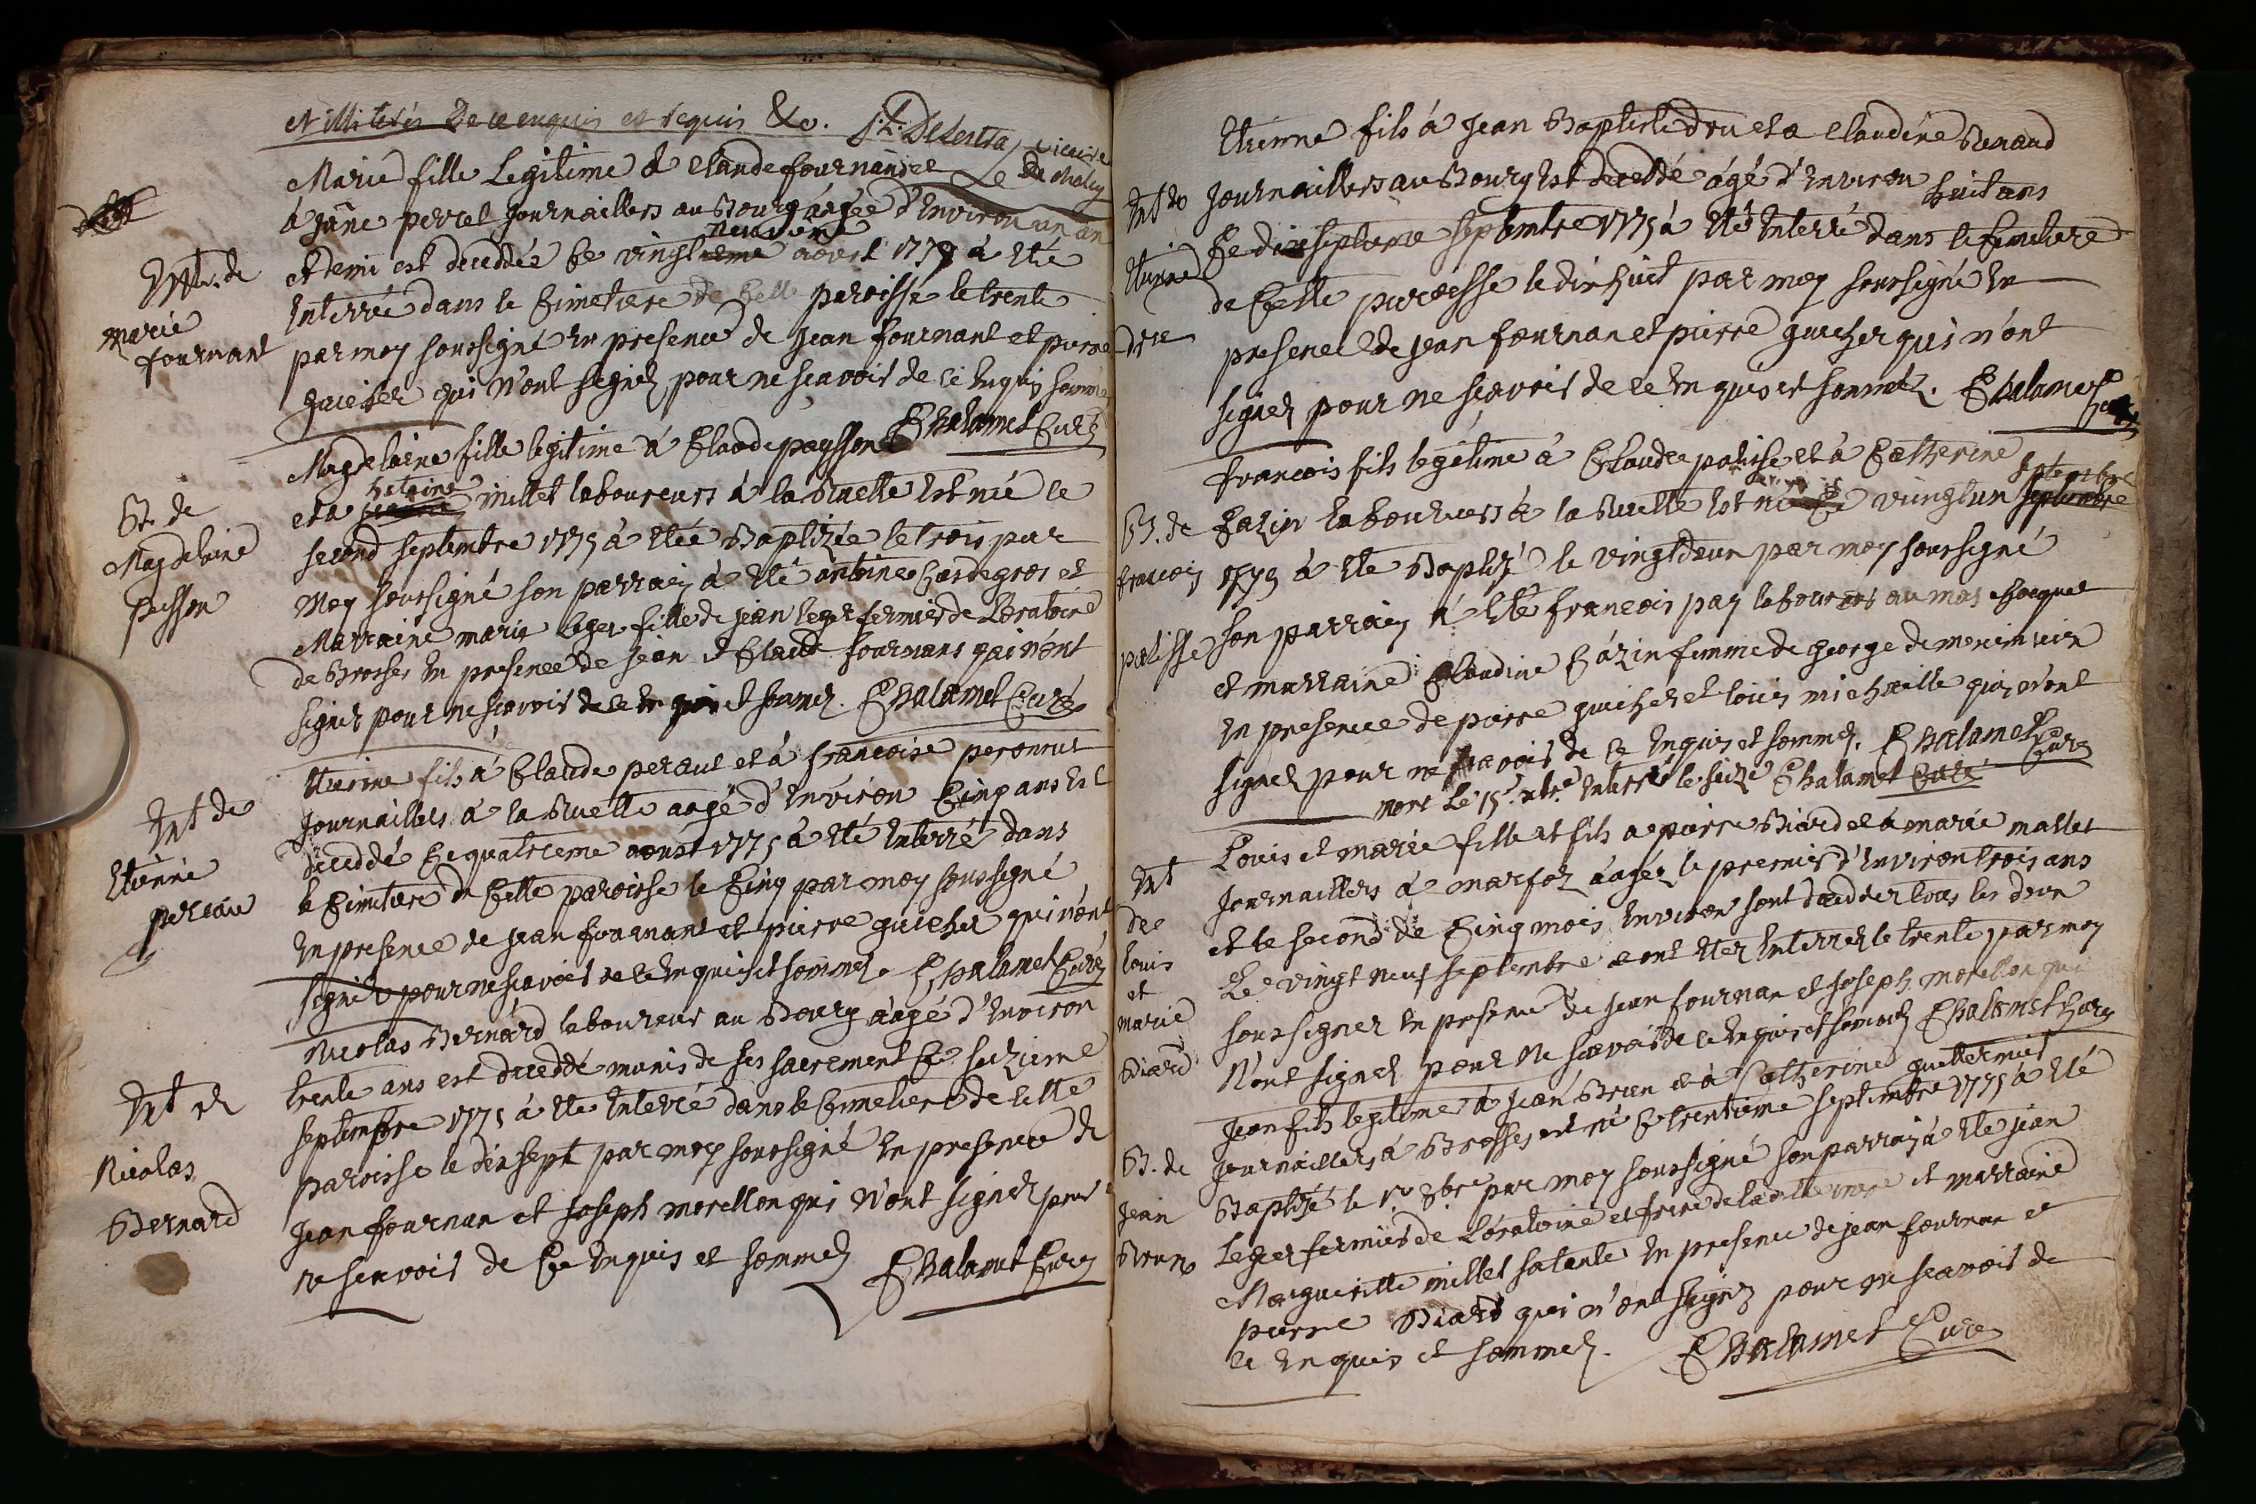 et illiterés De ce enquis et requis &c. J. L. Delestra vicaire
Marie fille Legitime a Claude fournand et
a Jâne perret Journailliers au Bourg âagée d'Environ un an
et demi est deceddée Ce vingt neuvieme aoust 1775 à Eté
Enterrée dans le Cimetiere de Cette paroisse le trente
par moy soussigné En presence de Jean fournant et pierre
guicher qui n'ont signez pour ne scavoir de ce Enquis sommez
Chalamet Curé
Ent. de
Marie
fournant
Magdelaine fille legitime à Claude paysson
et a millet laboureurs à la Ruelle Est née le
second septembre 1775 à Etée Baptizée le trois par
Moy soussigné son parrain à Eté antoine Cardegros et
Marraine marie leger fille de jean leger fermier de Loratoire
de Brosses En presence de jean et Claude fournans qui n'ont
signez pour ne scavoir de ce En quis et sommez. Chalamet Curé
B. de
Magdelaine
paisson
Etienne fils à Claude peraut et à francoise peronnet
Journailliers à la Ruelle aagé d'Environ Cinq ans Est
deceddé Ce quatrieme aoust 1775 à Eté Enterré dans
le Cimetiere de Cette paroisse le Cinq par moy soussigné
En presence de jean fournant et pierre guicher qui n'ont
signez pour ne scavoir de ce Enquis et sommez. Chalamet Curé
Ent de
Etienne
pereau
Nicolas Bernard laboureur au Bourg aagé d'Environ
trente ans est deceddé munis de ses sacrement Ce seizieme
septembre 1775 à Eté Enterré dans le Cimetiere de Cette
paroisse le dix sept par moy soussigné En presence de
Jean fournan et Joseph morellon qui n'ont signez pour
ne scavoir de Ce Enquis et sommez Chalamet Curé
Ent de
Nicolas
Bernard
Etienne fils à Jean Baptiste dru et a Claudine Renaud
Journailliers au Bourg Est deceddé âgé d'Environ huit ans
Ce dix septieme septembre 1775 à Eté Enterré dans le Cimetiere
de Cette paroisse le dix huit par moy soussigné En
presence de jean fournan et pierre guicher qui n'ont
signez pour ne scavoir de ce En quis et sommez. Chalamet Curé
Ent de
Etienne
Drue
francois fils legitime à Claude palisse et à Catherine
Cazin laboureurs à la Ruelle Est né Ce vingt un septembre
1775 à Eté Baptizé le vingt deux par moy soussigné
son parrain à Eté francois pay laboureur au mas
et marraine Claudine Cazin femme de george
En presence de pierre guicher et louis michaille qui n'ont
signez pour ne scavoir de ce Enquis et sommez. Chalamet Curé
mort Le 15e Enterré le seize Chalamet Curé
B. de
francois
palisse
Louis et marie fille et fils a pierre Biard et à marie mallet
Journailliers à marfoz âagéz le premier d'Environ trois ans
et le second de Cinq mois Environ sont deceddez tous les deux
Le vingt neuf septembre et ont Etez Enterrez le trente par moy
soussignez En presence de jean fournan et joseph morellon qui
N'ont signez pour Ne scavoir de ce Enquis et sommez Chalamet Curé
Ent
de
Louis
et
marie
Biard
Jean fils legitime à Jean Brun et à Catherine guillermet
Journailliers à Brosses est né Ce trentieme septembre 1775 à Eté
Baptizé le 1er 8bre par moy soussigné son parrain à Eté jean
Leger fermier de Loratoire et frere de la et marraine
Marguerite millet sa tante En presence de jean fournan et
pierre Biard qui n'ont signez pour ne scavoir de
ce En quis et sommez. Chalamet Curé
B. de
Jean
Brun